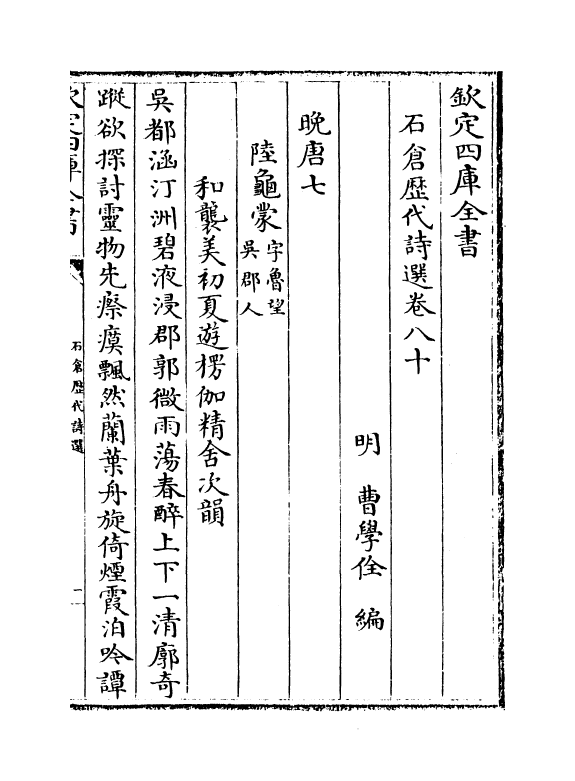 欽定四庫全書
石倉歷代詩選卷八十
明　曹學佺　編
晚唐七
陸龜蒙字魯望
吳郡人
和襲美初夏遊楞伽精舍次韻
吳都涵汀洲碧液浸郡郭微雨蕩春醉上下一清廓奇
蹤欲探討靈物先瘵瘼飄然蘭葉舟旋倚煙霞泊吟譚
欽定四庫全書
石倉歷代詩選